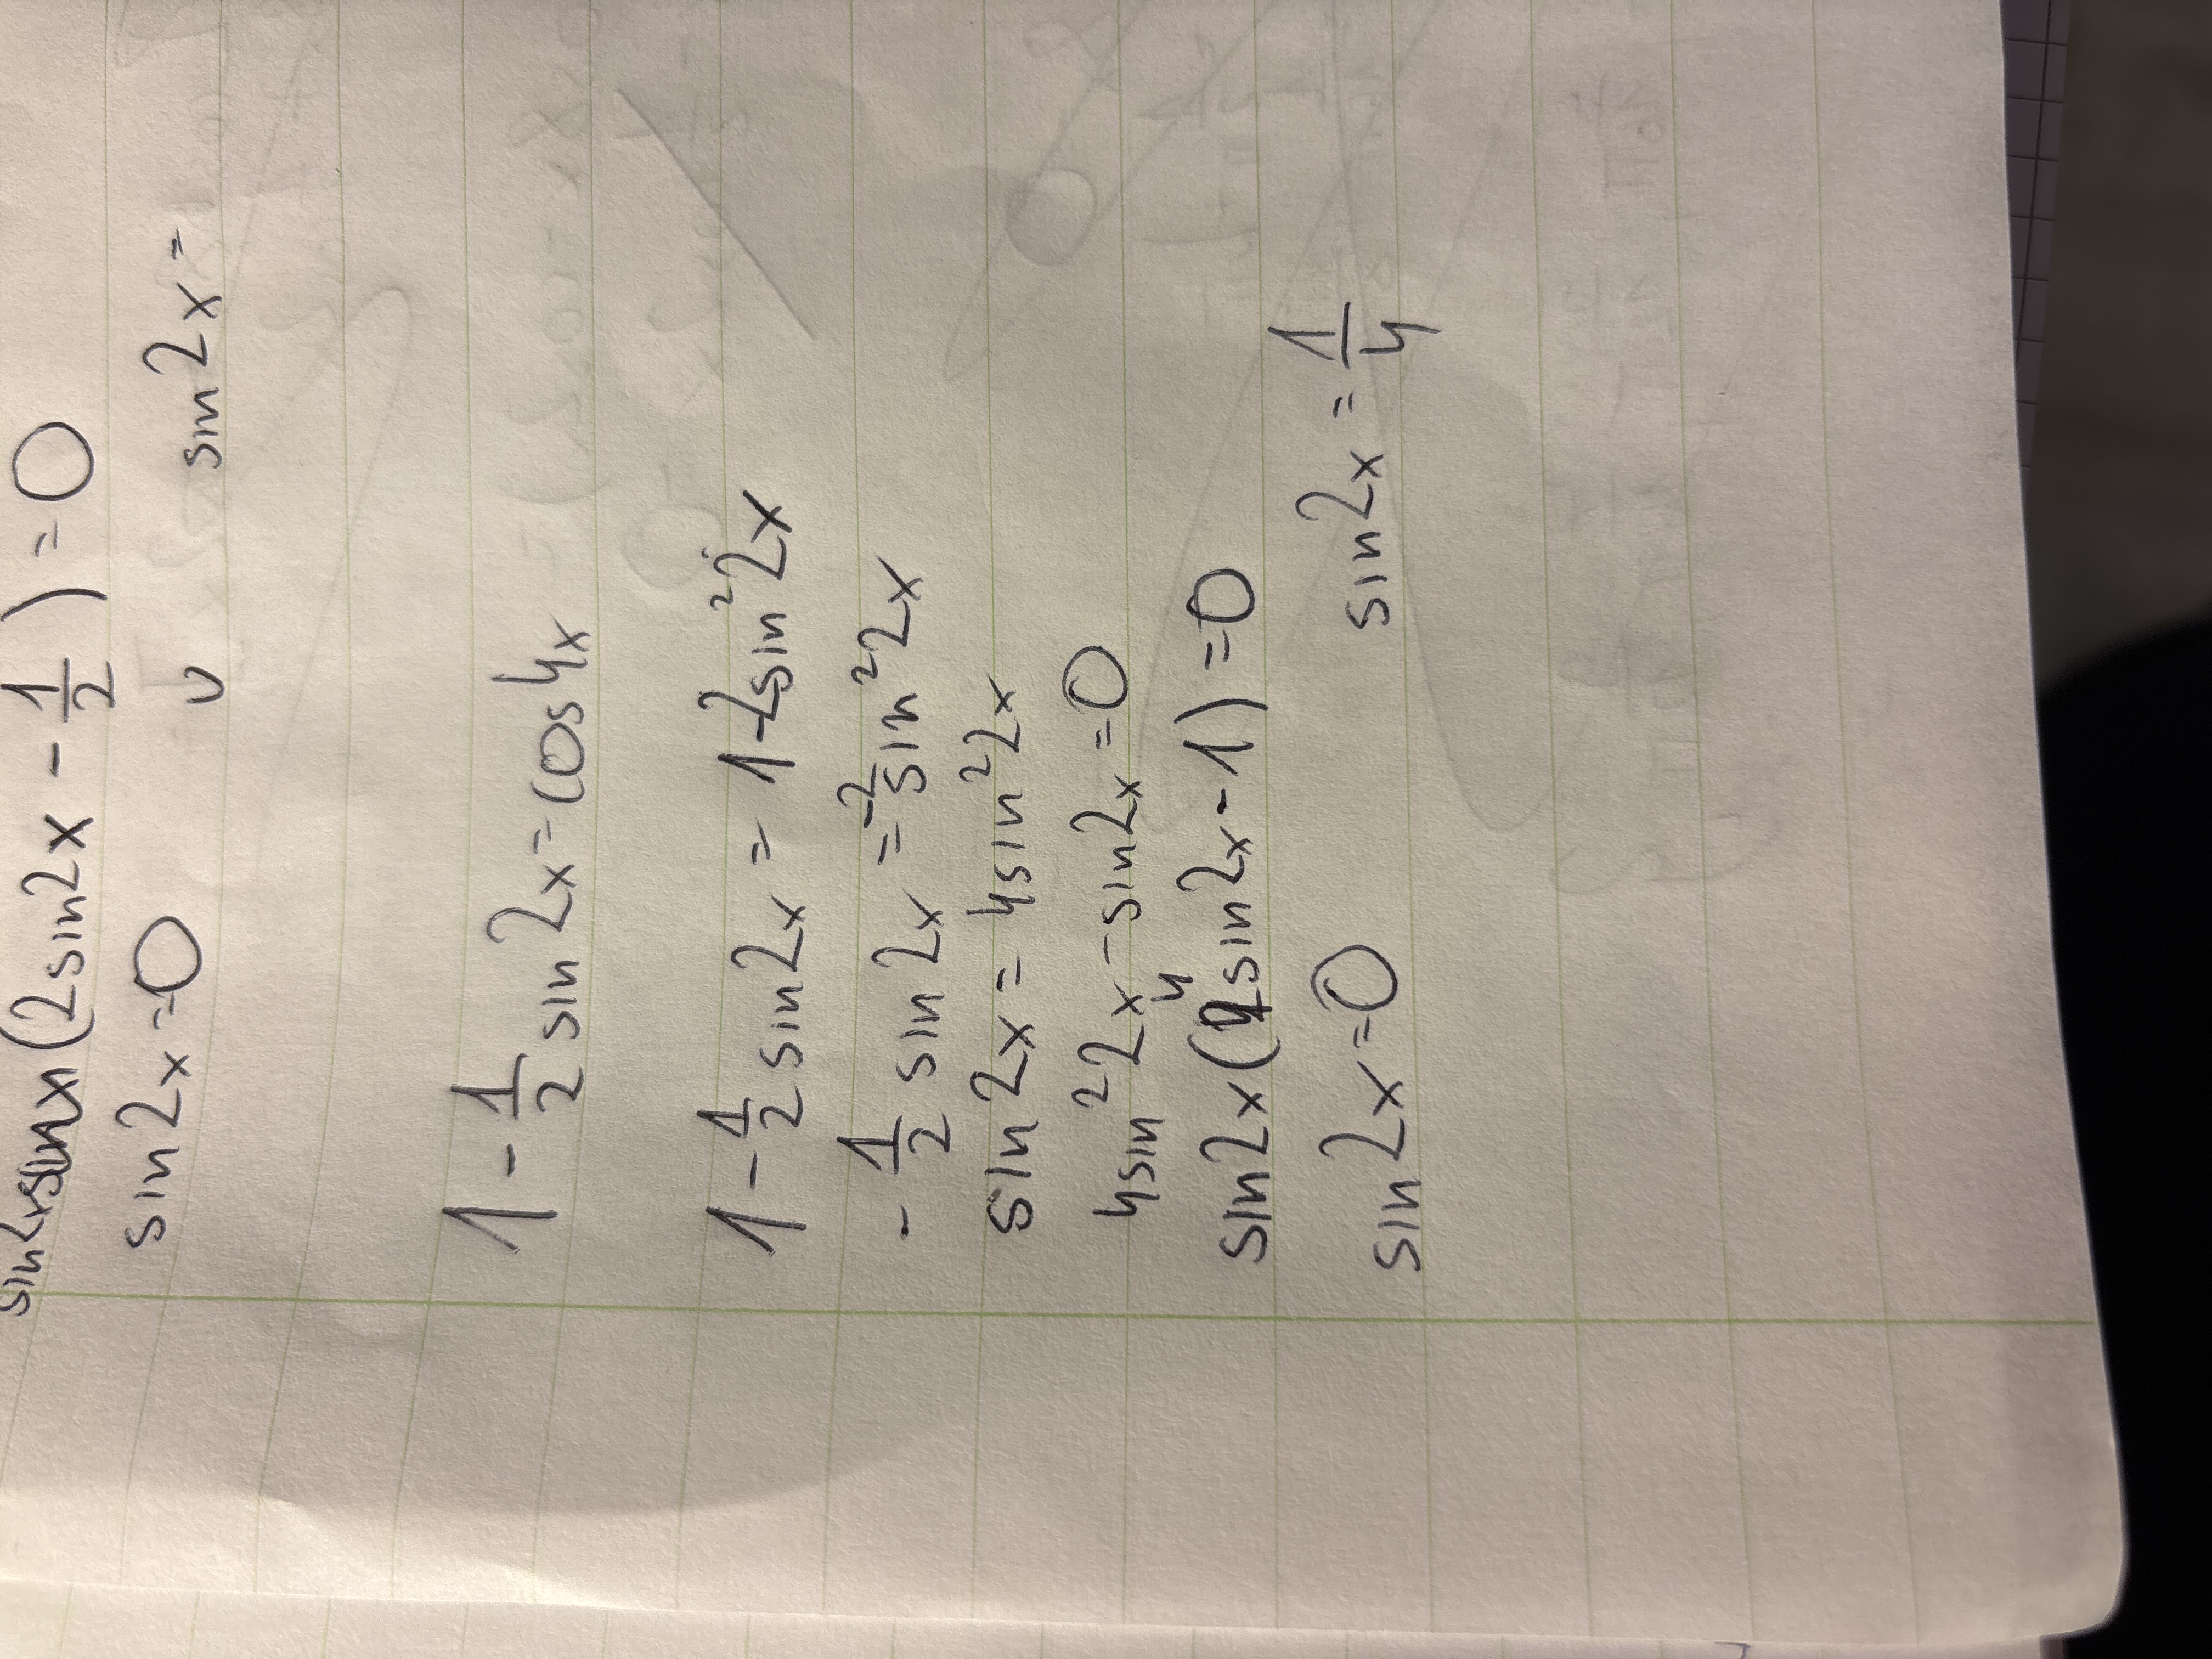 sin2x (2sin2x - 1/2) = 0
sin2x = 0 ∪ sin2x =
1 - 1/2 sin2x = cos4x
1 - 1/2 sin2x = 1 - 2sin²2x
- 1/2 sin2x = -2 sin²2x
sin2x = 4sin²2x
4sin²2x - sin2x = 0
sin2x (4 sin2x - 1) = 0
sin2x = 0 sin2x = 1/4